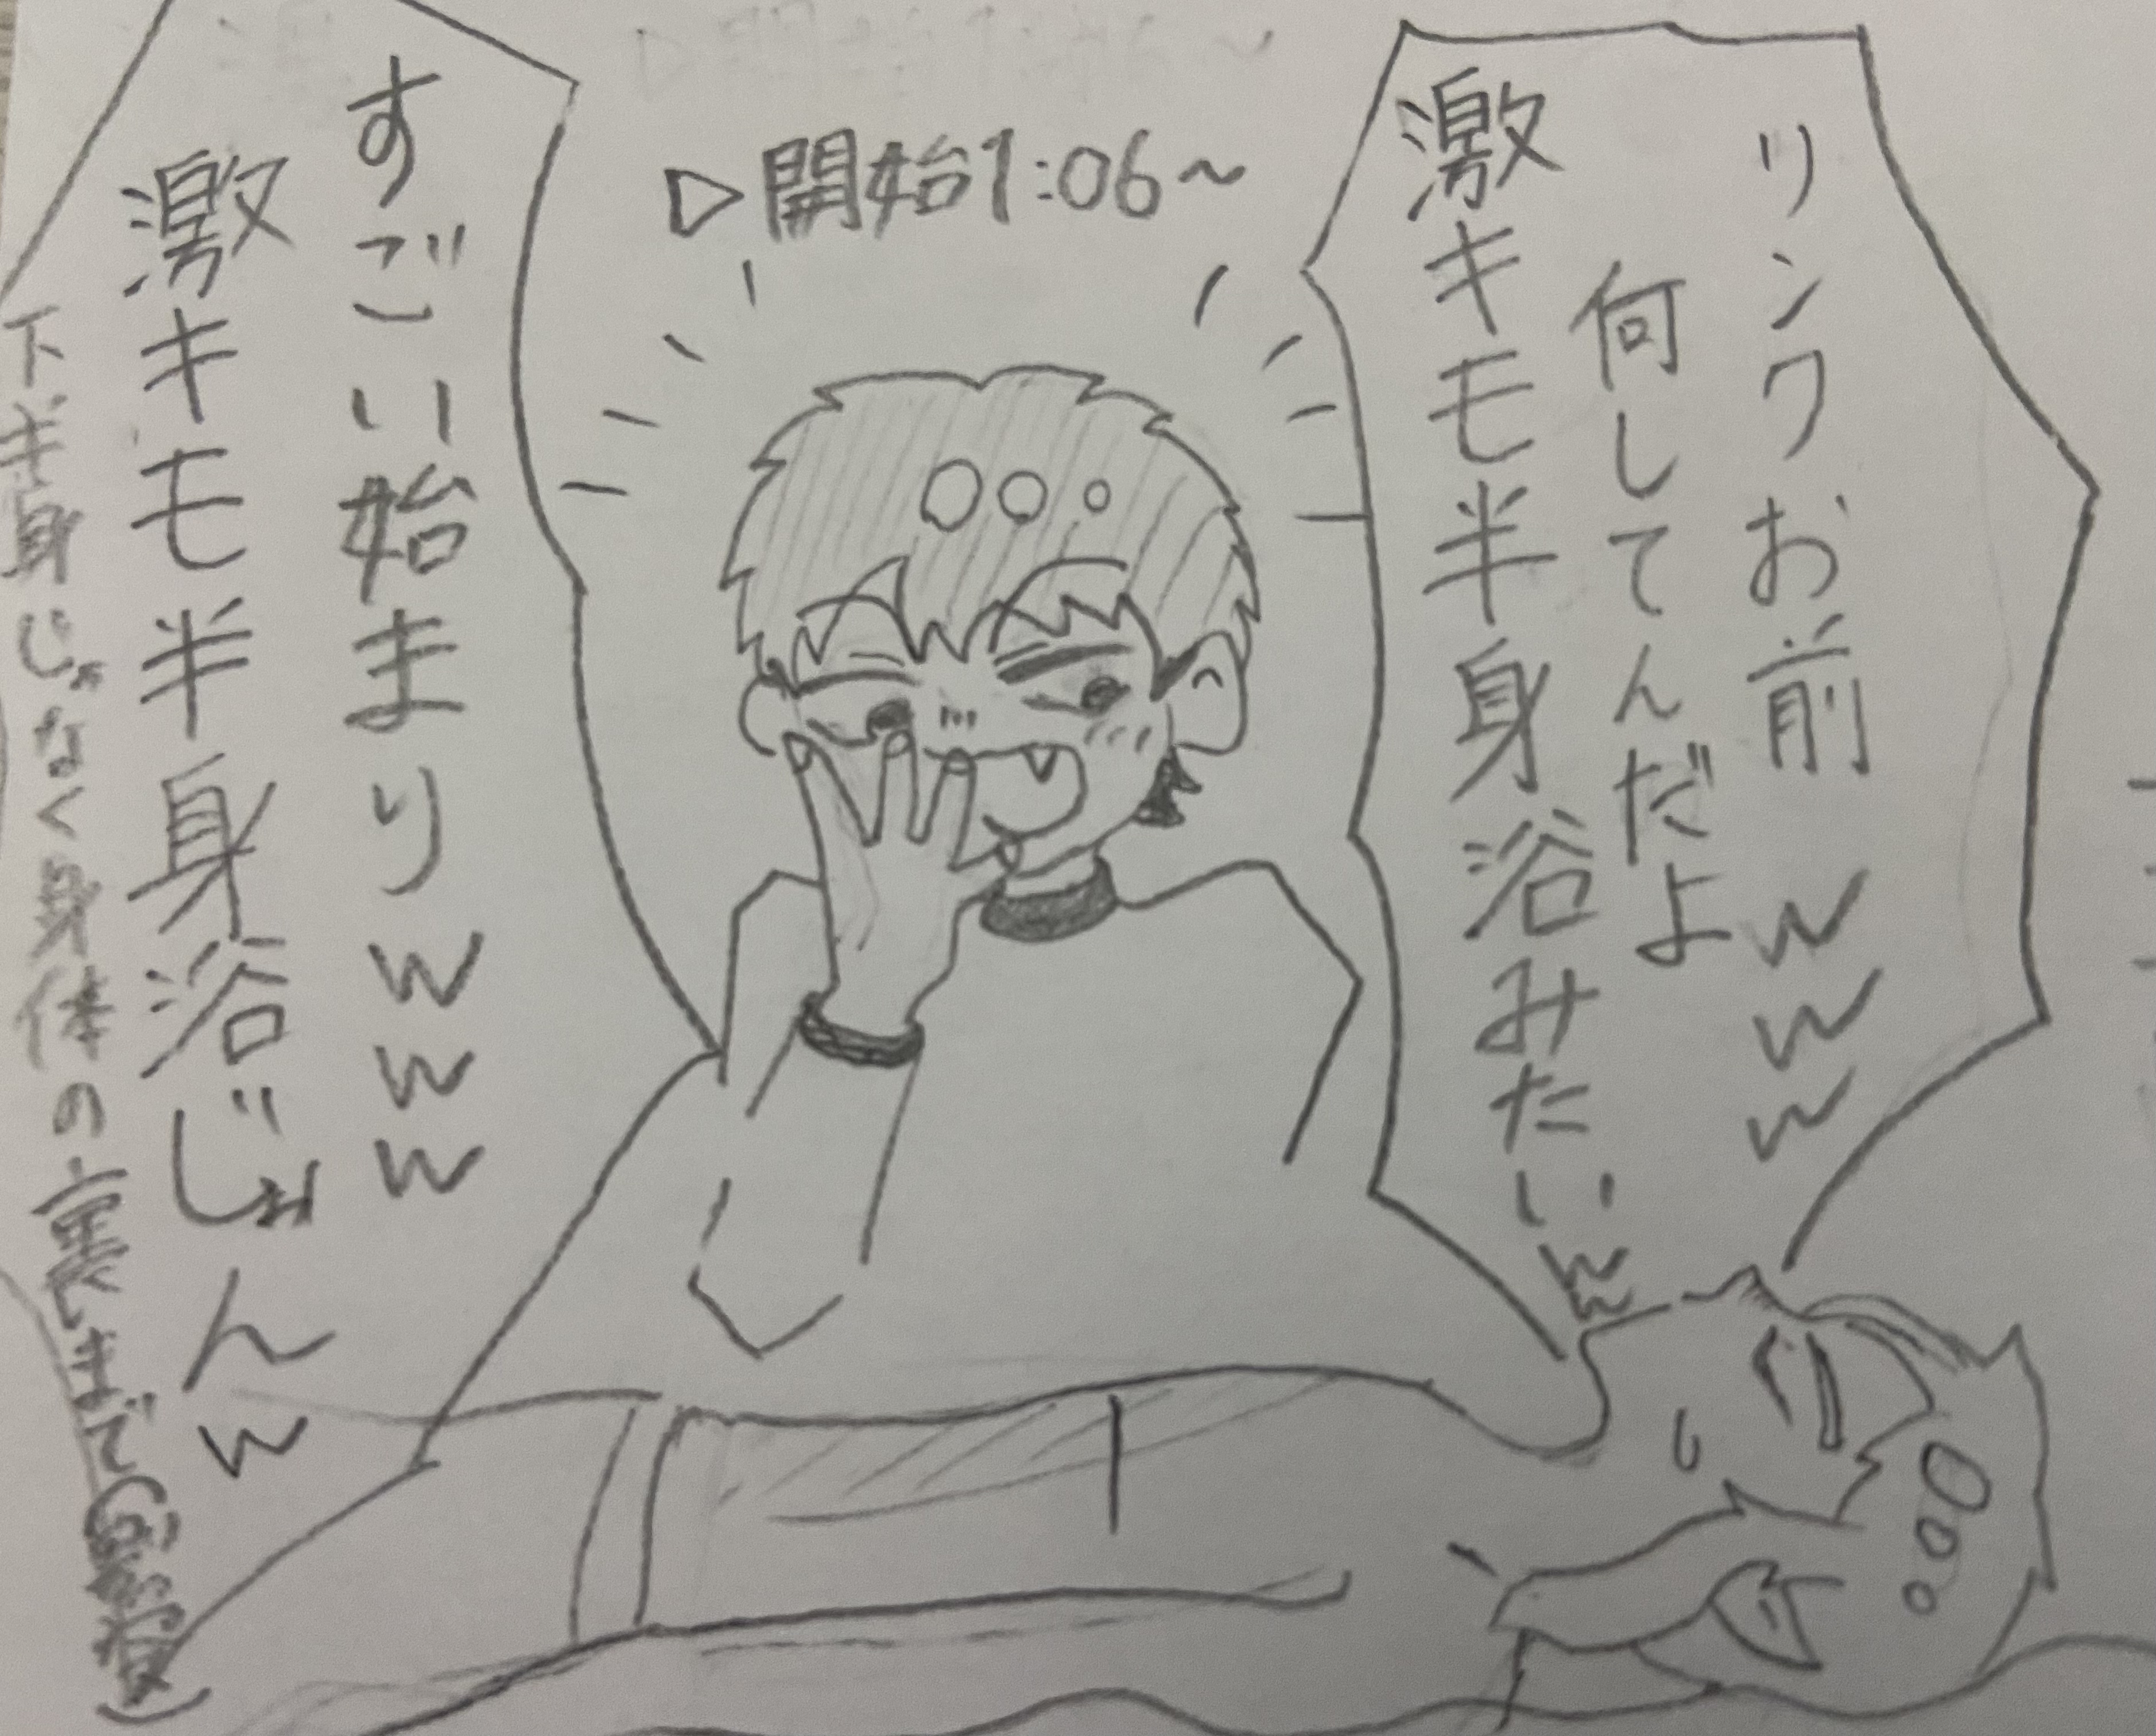 ▷開始1:06～
リンクお前www
何してんだよ
激キモ半身浴みたいww
すごい始まりwww
激キモ半身浴じゃんw
下半身じゃなく身体の裏まで